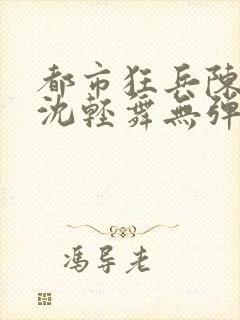 都市狂兵陳
沈輕舞無彈
馮导老